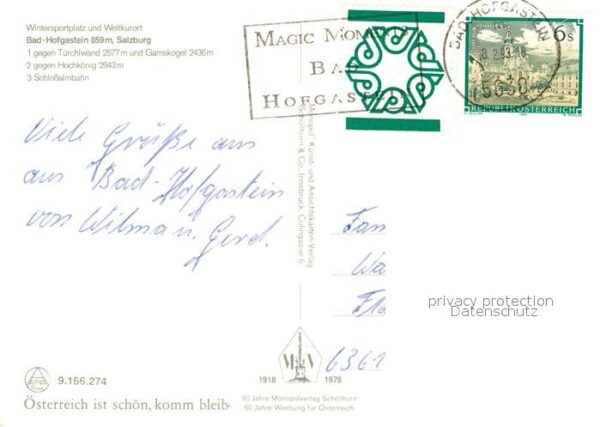 Wintersportplatz und Weltkurort
Bad-Hofgastein 859 m, Salzburg
1 gegen Türchlwand 2577 m und Gamskogel 2436 m
2 gegen Hochkönig 2943 m
3 Schloßalmbahn
MAGIC MOMENTS
BAD
HOFGASTEIN
BAD HOFGASTEIN
5630
6 S
REPUBLIK ÖSTERREICH
Viele Grüße aus
aus Bad-Hofgastein
von Wilma u. Gerd.
"Monopol" Kunst- und Ansichtskarten-Verlag
Schöllhorn & Co., Innsbruck, Colingasse 6
Fam
Wa
Fla
6361
privacy protection
Datenschutz
M V
1918 1978
60 Jahre Monopolverlag Schöllhorn
60 Jahre Werbung für Österreich
9.166.274
Österreich ist schön, komm bleib